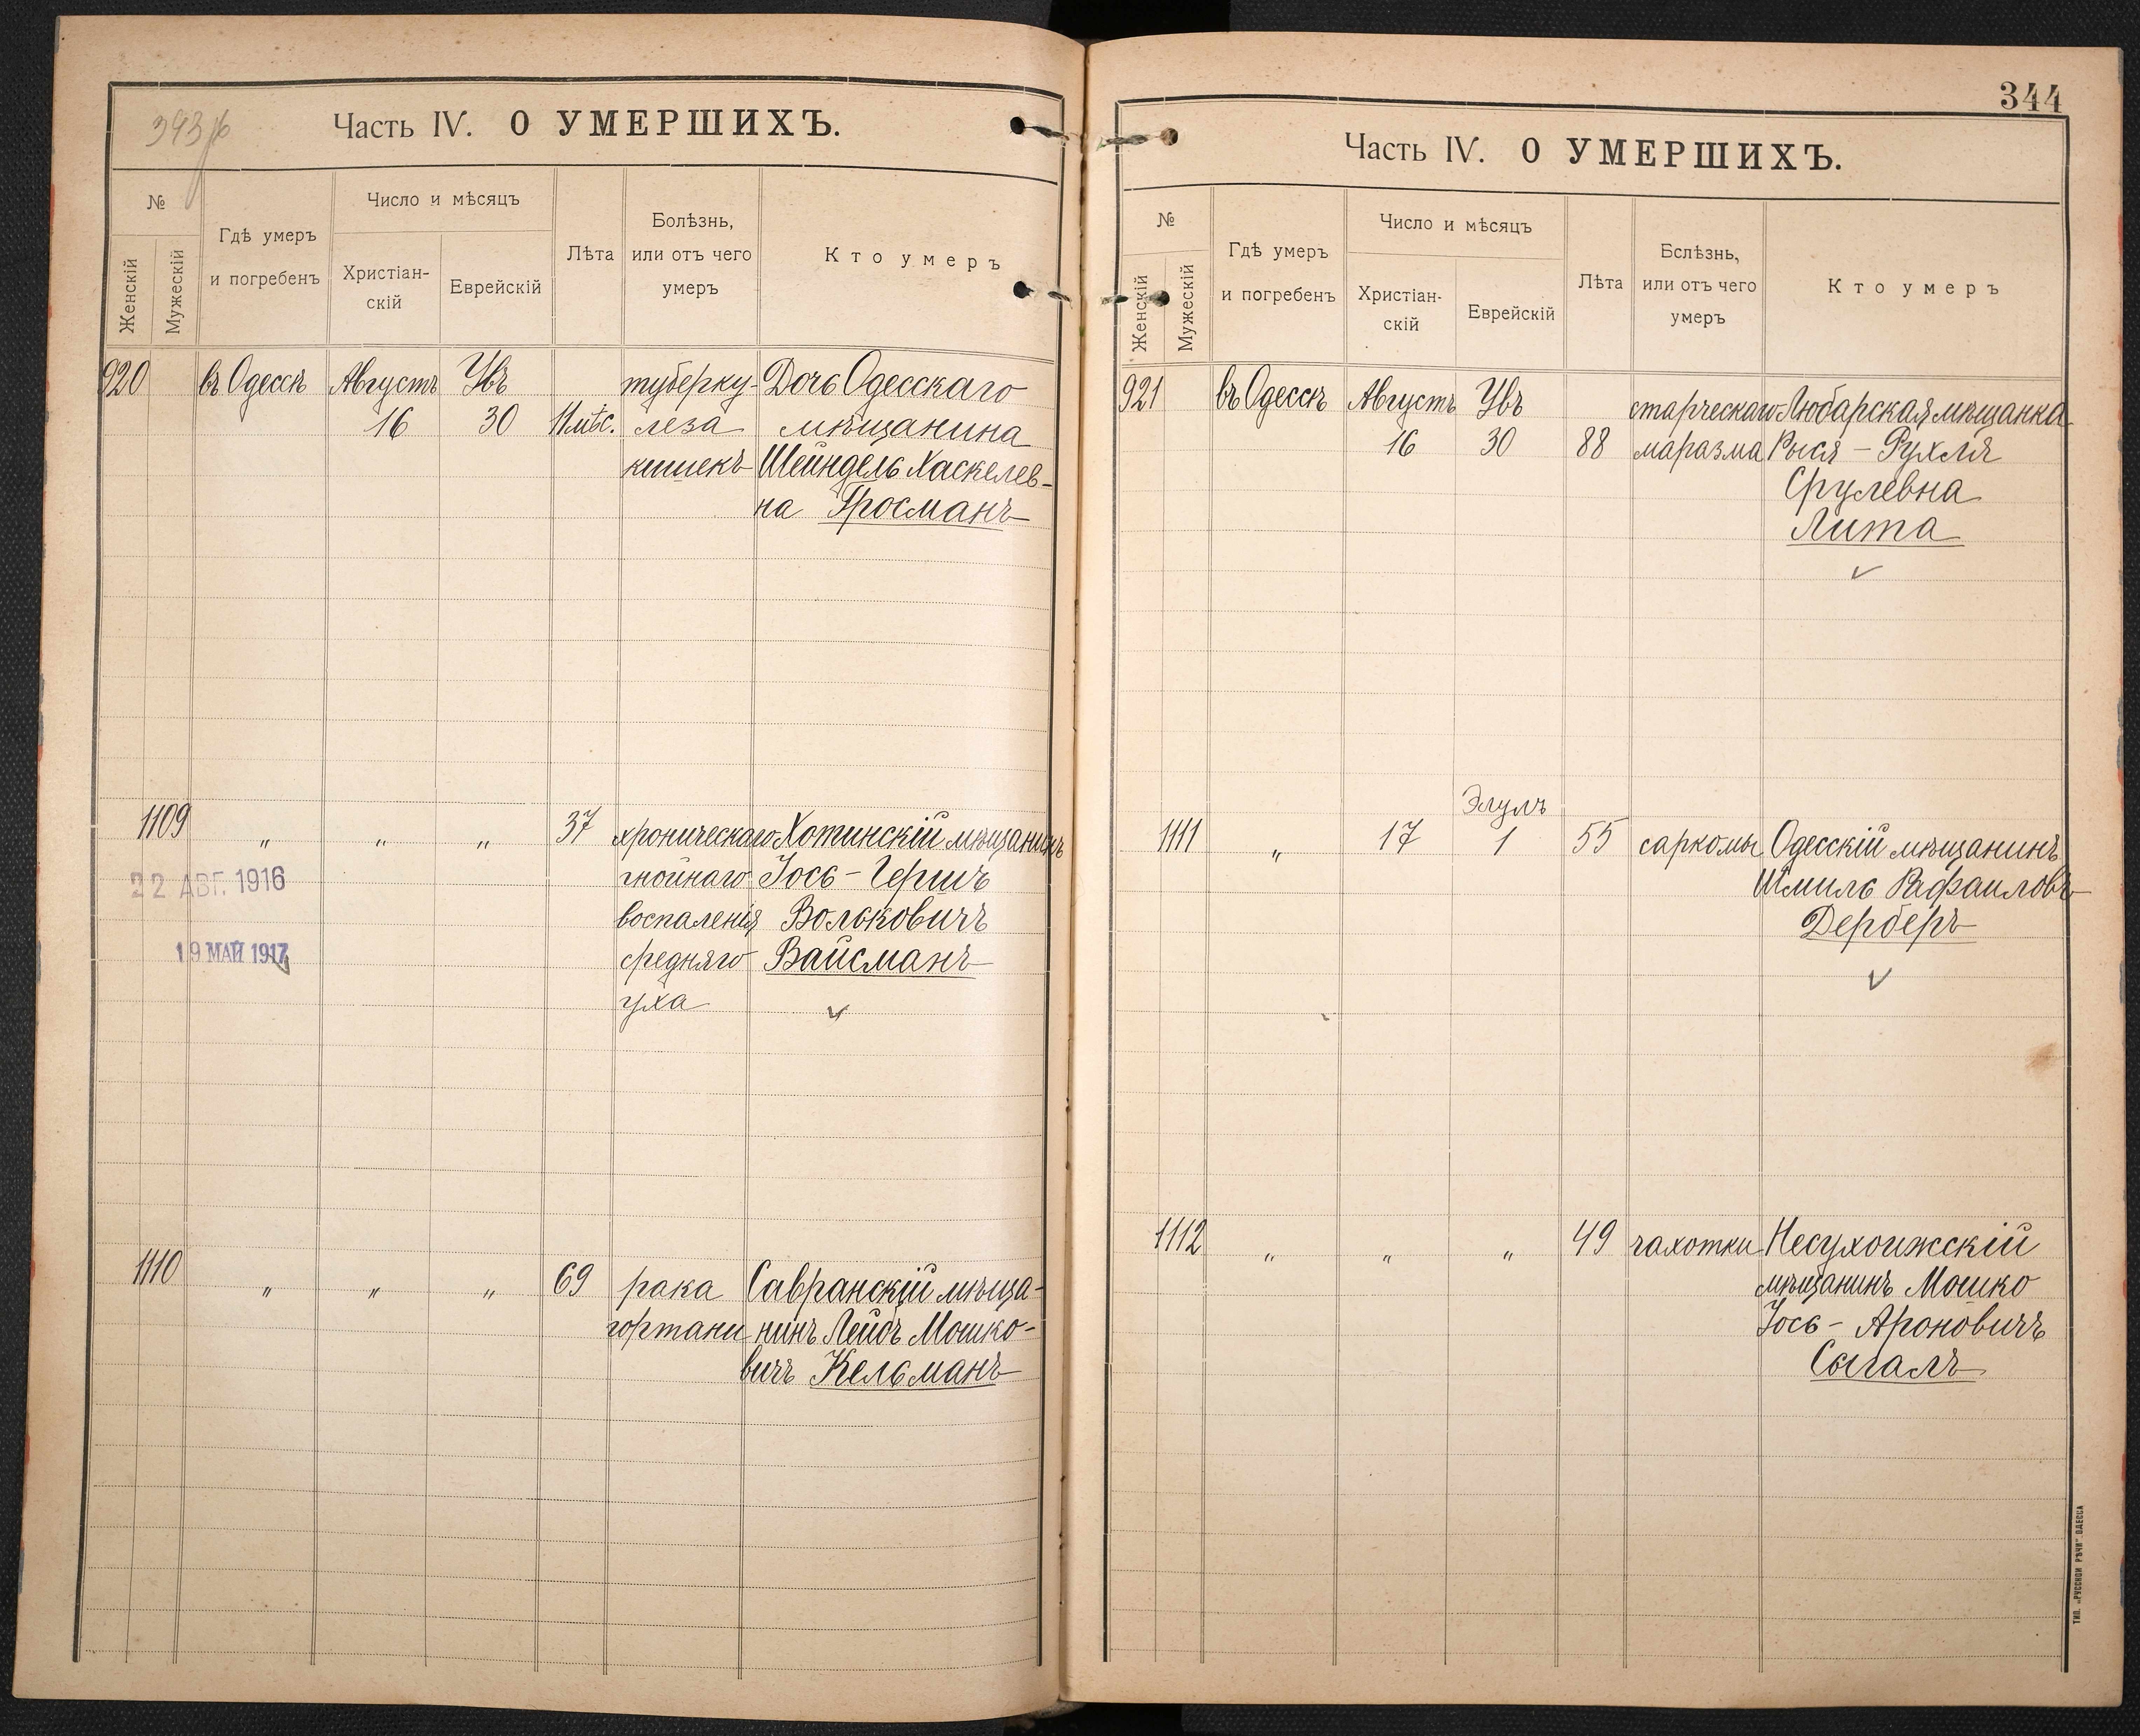 393 об
Часть IV. О УМЕРШИХЪ.
№
Женскій
Мужескій
Гдѣ умеръ
и погребенъ
Число и мѣсяцъ
Христіан-
скій
Еврейскій
Лѣта
Болѣзнь,
или отъ чего
умеръ
Кто умеръ
920 въ Одессѣ Августъ Увъ туберку- Дочь Одесскаго
16 30 11 мѣс. леза мѣщанина
кишекъ Шейндель Хаскелев-
на Гросманъ
1109 " " " 37 хроническаго Хотинскій мѣщанинъ
22 АВГ. 1916 гнойнаго Іось - Гершъ
воспаленія Вольковичъ
19 МАЙ 1917 средняго Вайсманъ
уха
1110 " " " 69 рака Савранскій мѣща-
гортани нинъ Лейбъ Мошко-
вичъ Кельманъ
344
Часть IV. О УМЕРШИХЪ.
№
Женскій
Мужескій
Гдѣ умеръ
и погребенъ
Число и мѣсяцъ
Христіан-
скій
Еврейскій
Лѣта
Бслѣзнь,
или отъ чего
умеръ
Кто умеръ
921 въ Одессѣ Августъ Увъ старческаго Любарская мѣщанка
16 30 88 маразма Рыся - Рухля
Срулевна
Лита
Элулъ
1111 " 17 1 55 саркомы Одесскій мѣщанинъ
Шмиль Рафаиловъ
Дерберъ
1112 " " " 49 чахотки Несухоижскій
мѣщанинъ Мошко
Іось - Ароновичъ
Сыгалъ
ТИП. „РУССКОЙ РѢЧИ" ОДЕССА